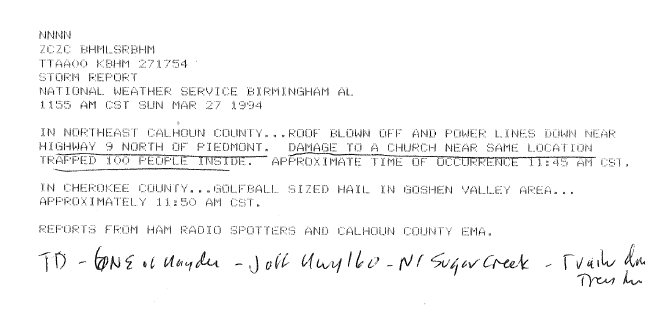 NNNN
ZCZC BHMLSRBHM
TTAA00 KBHM 271754
STORM REPORT
NATIONAL WEATHER SERVICE BIRMINGHAM AL
1155 AM CST SUN MAR 27 1994
IN NORTHEAST CALHOUN COUNTY...ROOF BLOWN OFF AND POWER LINES DOWN NEAR
HIGHWAY 9 NORTH OF PIEDMONT. DAMAGE TO A CHURCH NEAR SAME LOCATION
TRAPPED 100 PEOPLE INSIDE. APPROXIMATE TIME OF OCCURRENCE 11:45 AM CST.
IN CHEROKEE COUNTY...GOLFBALL SIZED HAIL IN GOSHEN VALLEY AREA...
APPROXIMATELY 11:50 AM CST.
REPORTS FROM HAM RADIO SPOTTERS AND CALHOUN COUNTY EMA.
TD - 6 NE of Hayden - Joff Hwy 160 - Nr Sugar Creek -